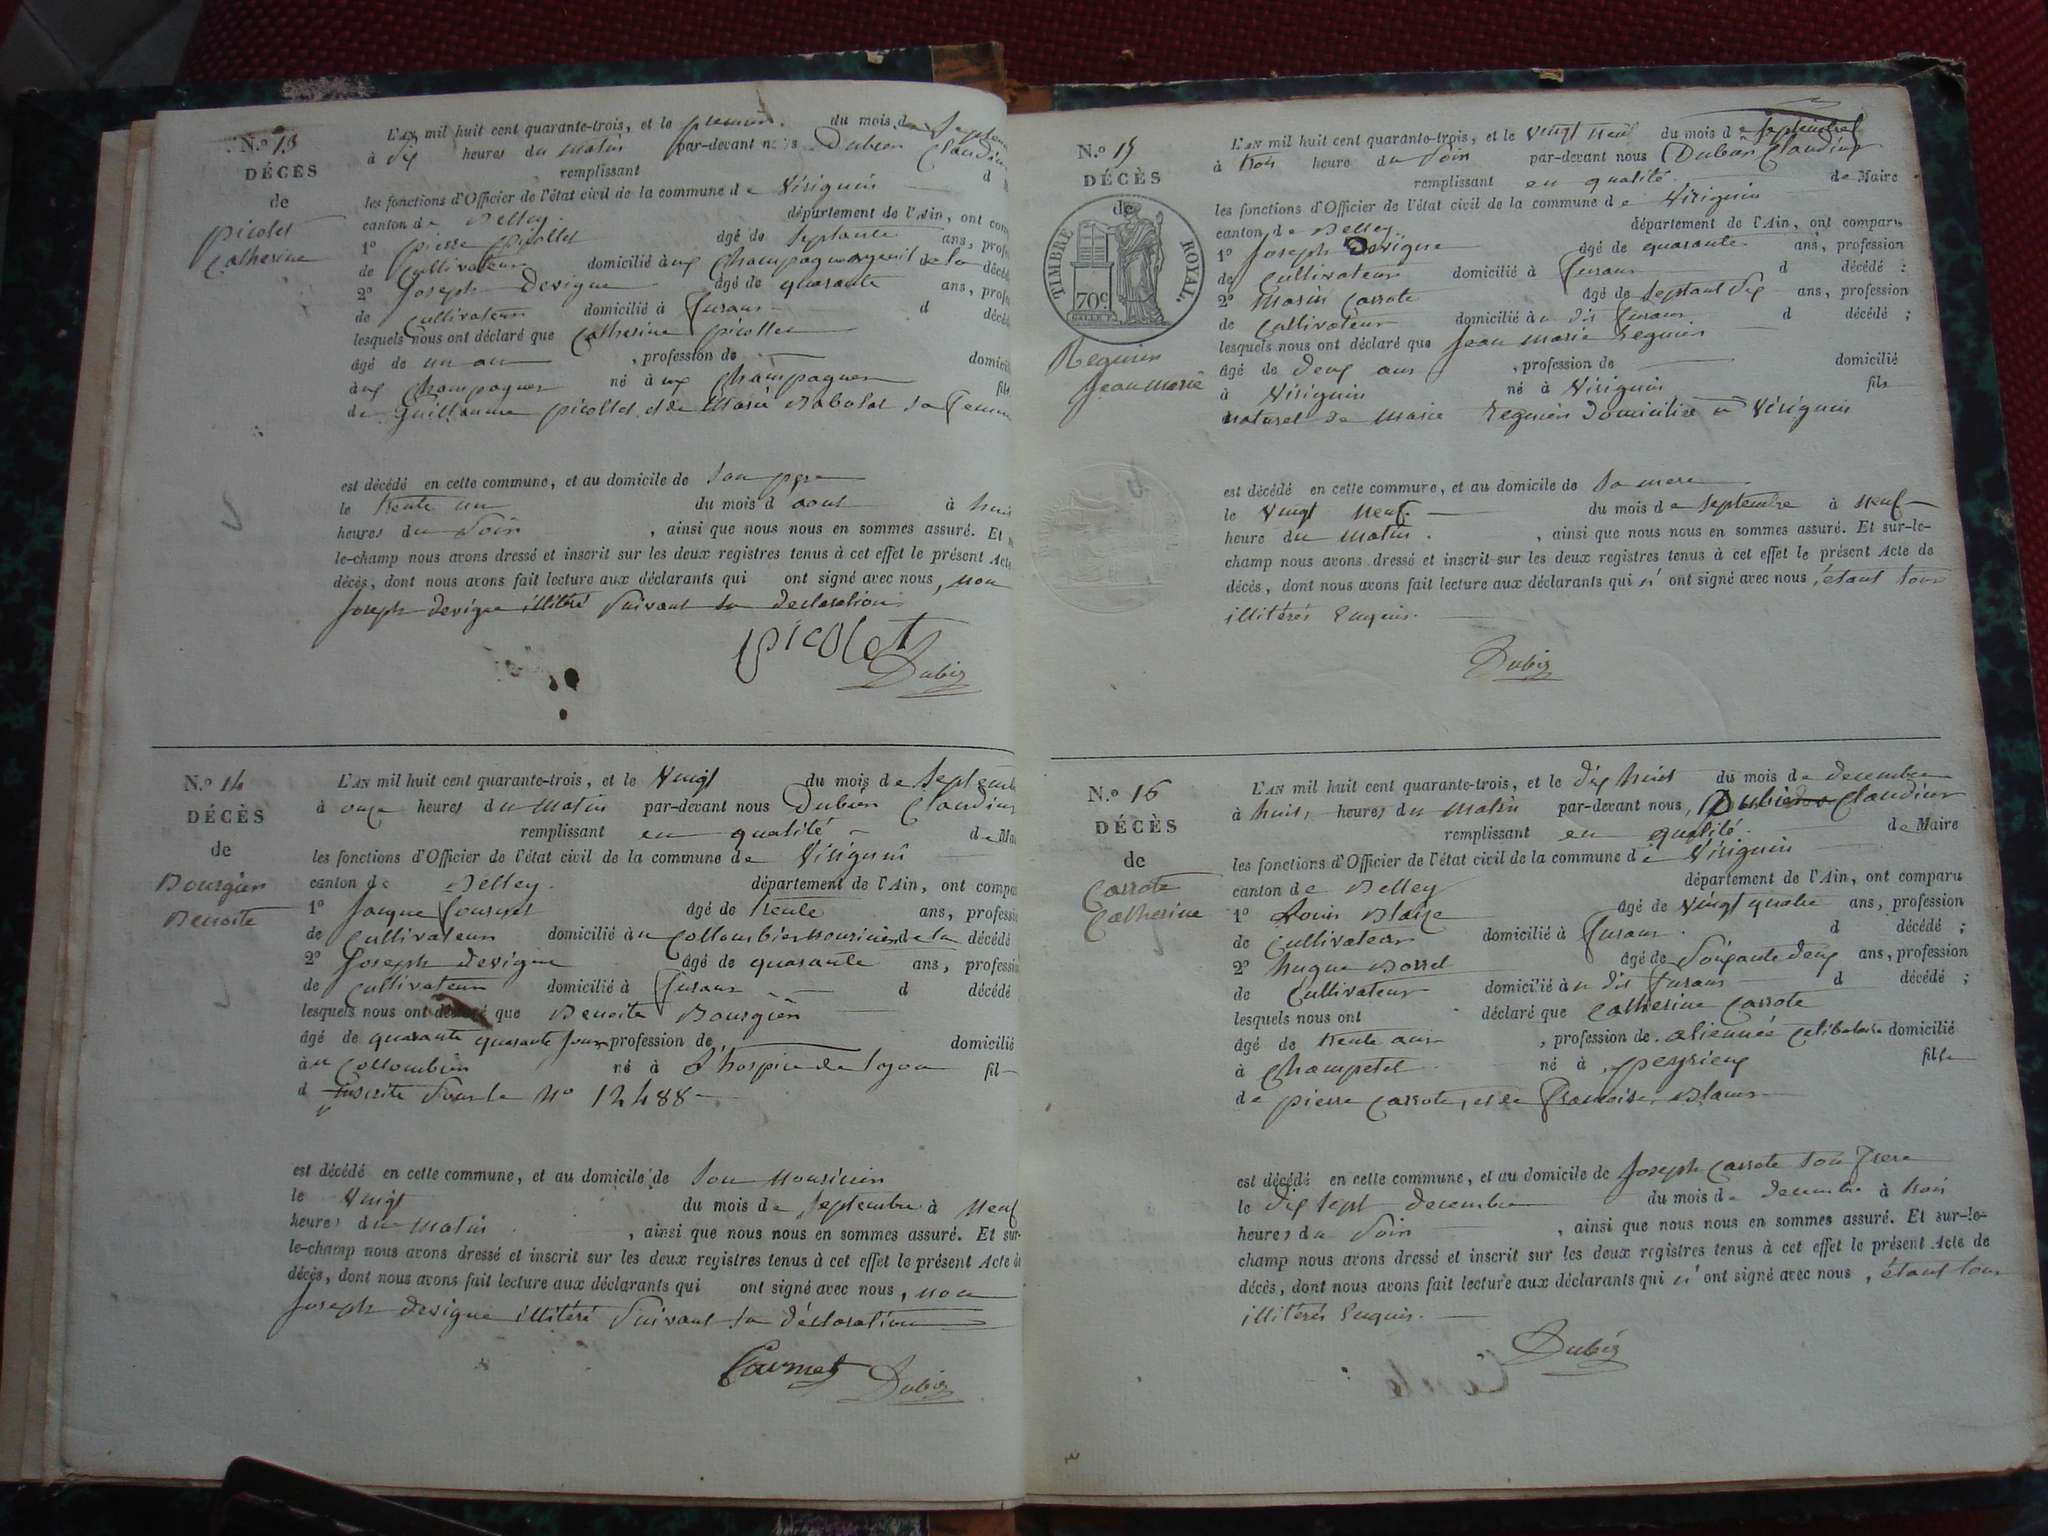 N.º 13
DÉCÈS
de
picolet
Catherine
L'AN mil huit cent quarante-trois, et le premier du mois de Septem
à dix heures du matin par-devant nous Dubien Claudius
remplissant d
les fonctions d'Officier de l'état civil de la commune de Virignin
canton de Belley département de l'Ain, ont com
1º pierre picollet âgé de septante ans, prof
de Cultivateur domicilié à ux Champagnes de la décéd
2º Joseph devigne âgé de quarante ans, profe
de Cultivateur domicilié à furans d décéd
lesquels nous ont déclaré que Catherine picollet
âgé de un an , profession de domicili
à ux Champagnes né à ux Champagnes fils
de Guillaume picollet et de Marie Babolat sa femme
est décédé en cette commune, et au domicile de son pere
le trente un du mois d aout à huit
heures du soir , ainsi que nous nous en sommes assuré. Et
le-champ nous avons dressé et inscrit sur les deux registres tenus à cet effet le présent Acte
décès, dont nous avons fait lecture aux déclarants qui ont signé avec nous, non
Joseph devigne illitéré suivant sa declaration
picolet
Dubien
N.º 14
DÉCÈS
de
Bourgien
Benoite
L'AN mil huit cent quarante-trois, et le vingt du mois de Septemb
à onze heures du matin par-devant nous Dubien Claudius
remplissant en qualité de Mai
les fonctions d'Officier de l'état civil de la commune de Virignin
canton de Belley département de l'Ain, ont compar
1º Jacque Cournet âgé de trente ans, professi
de Cultivateur domicilié à u Collombier nouricier de la décédé
2º Joseph devigne âgé de quarante ans, professi
de Cultivateur domicilié à furans d décédé
lesquels nous ont déclaré que Benoite Bourgien
âgé de quarante quarante jours profession de domicilié
à u Collombier né à L'hospice de Lyon fil
d inscrite sous le Nº 12488
est décédé en cette commune, et au domicile de son nouricier
le vingt du mois de septembre à neuf
heures du matin , ainsi que nous nous en sommes assuré. Et sur-
le-champ nous avons dressé et inscrit sur les deux registres tenus à cet effet le présent Acte de
décès, dont nous avons fait lecture aux déclarants qui ont signé avec nous, non
Joseph devigne illitéré suivant sa déclaration
Cournet Dubien
N.º 15
DÉCÈS
de
TIMBRE ROYAL
70c
Reguin
Jean marie
L'AN mil huit cent quarante-trois, et le vingt neuf du mois de septembre
à trois heure du soir par-devant nous Dubien Claudius
remplissant en qualité de Maire
les fonctions d'Officier de l'état civil de la commune de Virignin
canton de Belley département de l'Ain, ont comparu
1º Joseph Devigne âgé de quarante ans, profession
de Cultivateur domicilié à furans d décédé ;
2º Marin Carrote âgé de septant dix ans, profession
de Cultivateur domicilié à u dit furans d décédé ;
lesquels nous ont déclaré que Jean marie reguin
âgé de deux ans , profession de domicilié
à Virignin né à Virignin fils
naturel de marie reguin domiciliée à Virignin
est décédé en cette commune, et au domicile de sa mere
le vingt neuf du mois de septembre à neuf
heure du matin , ainsi que nous nous en sommes assuré. Et sur-le-
champ nous avons dressé et inscrit sur les deux registres tenus à cet effet le présent Acte de
décès, dont nous avons fait lecture aux déclarants qui n' ont signé avec nous, étant tous
illitérés enquis
Dubien
N.º 16
DÉCÈS
de
Carrote
Catherine
L'AN mil huit cent quarante-trois, et le dix huit du mois de decembre
à huit heures du matin par-devant nous, Dubien Claudius
remplissant en qualité de Maire
les fonctions d'Officier de l'état civil de la commune de Virignin
canton de Belley département de l'Ain, ont comparu
1º Louis Blaize âgé de vingt quatre ans, profession
de Cultivateur domicilié à furans d décédé ;
2º hugue Borrel âgé de soixante deux ans, profession
de Cultivateur domicilié à u dit furans d décédé ;
lesquels nous ont déclaré que Catherine Carrote
âgé de trente ans , profession de aliennée celibataire domicilié
à Champetel né à peyrieux fille
de pierre Carrote, et de francoise Blanc
est décédé en cette commune, et au domicile de Joseph Carrote son frere
le dix sept decembre du mois de decembre à trois
heures du soir , ainsi que nous nous en sommes assuré. Et sur-le-
champ nous avons dressé et inscrit sur les deux registres tenus à cet effet le présent Acte de
décès, dont nous avons fait lecture aux déclarants qui n' ont signé avec nous, étant tous
illitérés enquis
Dubien